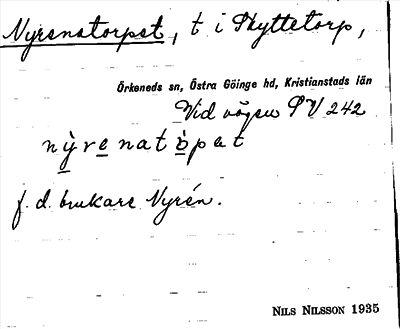 Nyrenatorpet, t i Skyttetorp,
Örkeneds sn, Östra Göinge hd, Kristianstads län
Vid vägen SV 242
nỳrenatòpet
f. d. brukare Nyrén.
NILS NILSSON 1935